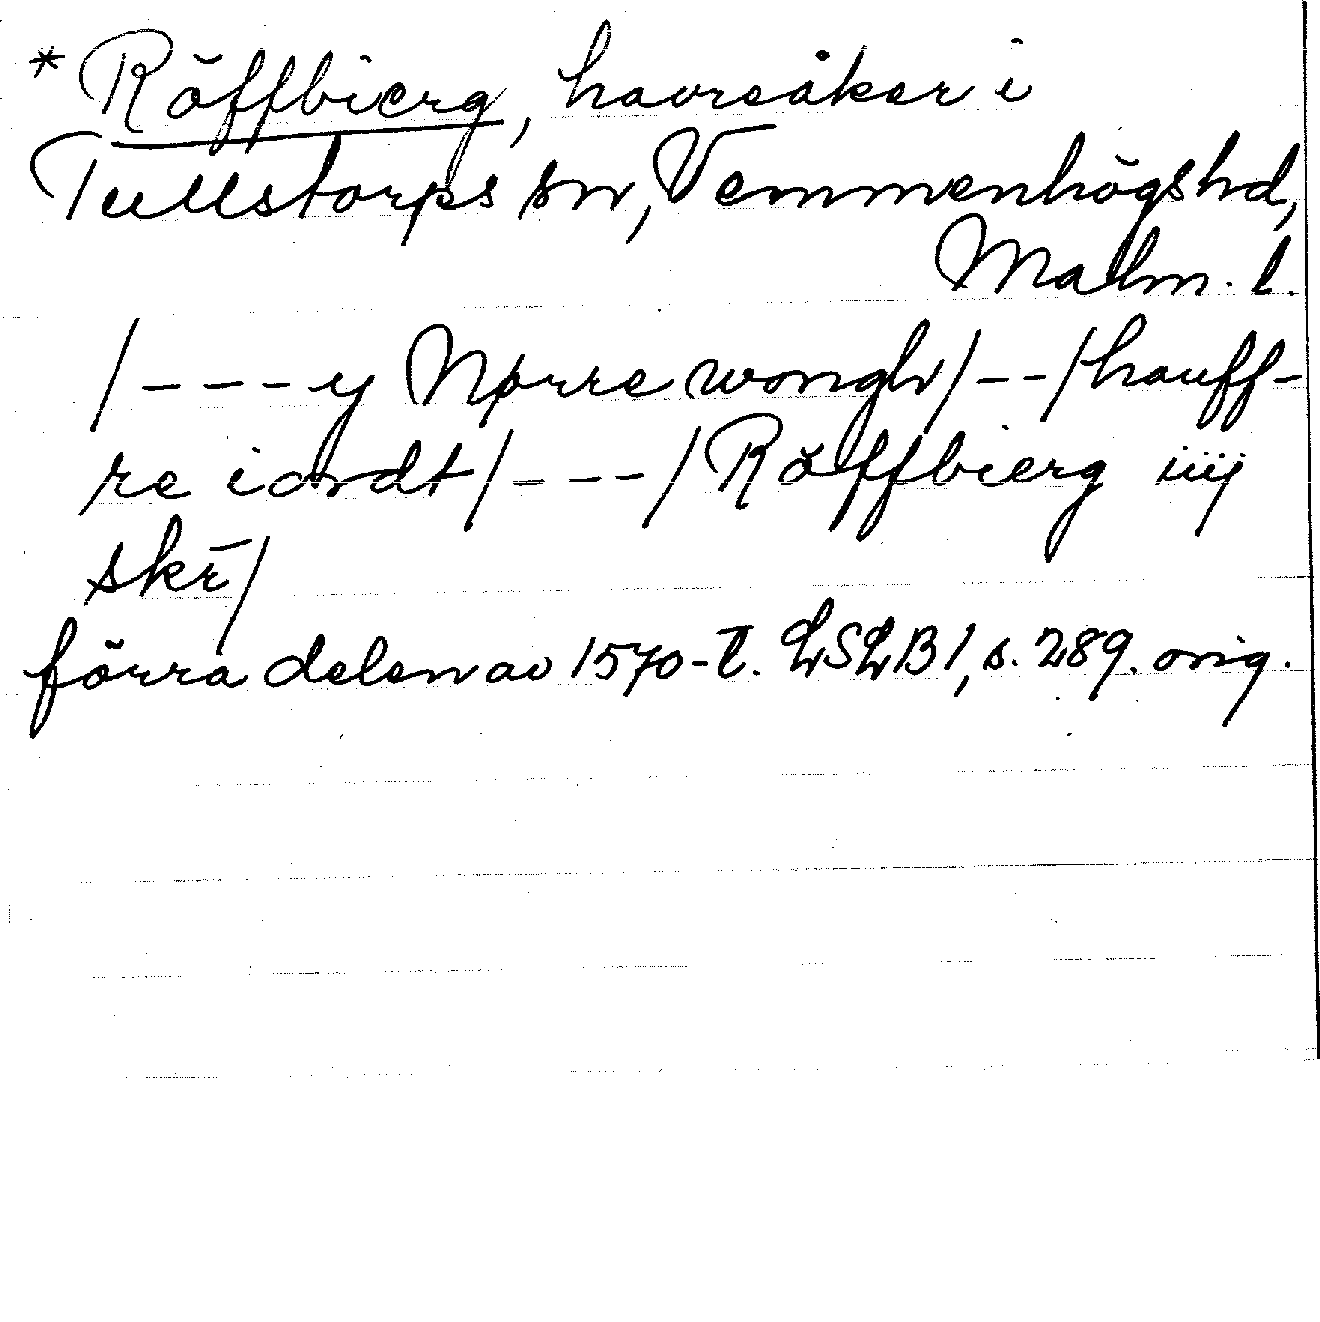 * Röffbierg, havreåker i
Tullstorps sn, Vemmenhögs hd,
Malm. l.
/---y Nørre wongh/--/hauff-
re iordt/---/Röffbierg iiij
skr̄/
förra delen av 1570-t. LSLB1, s. 289. orig.